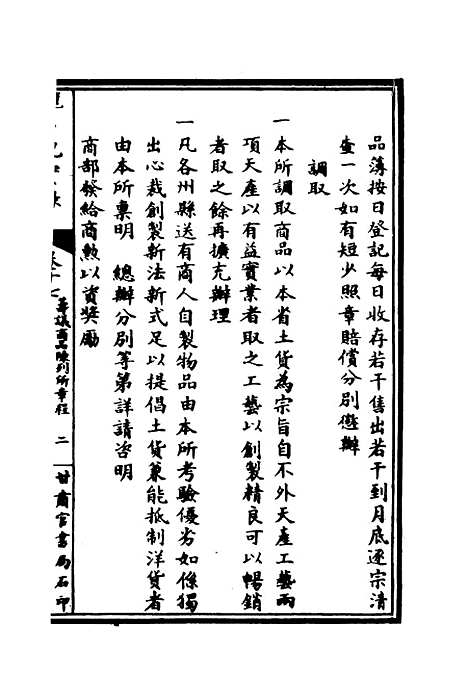 品薄按日登記每日收存若干售出若干到月底逐宗清
查一次如有短少照章賠償分別懲辦
調取
一本所調取商品以本省土貨為宗旨自不外天產工藝兩
項天產以有益實業者取之工藝以創製精良可以暢銷
者取之餘再擴充辦理
一凡各州縣送有商人自製物品由本所考驗優劣如係獨
出心裁創製新法新式足以提倡土貨兼能抵制洋貨者
由本所稟明　總辦分別等第詳請咨明
商部發給商勲以資獎勵
卷十七 籌議商品陳列所章程 二 甘肅官書局石印